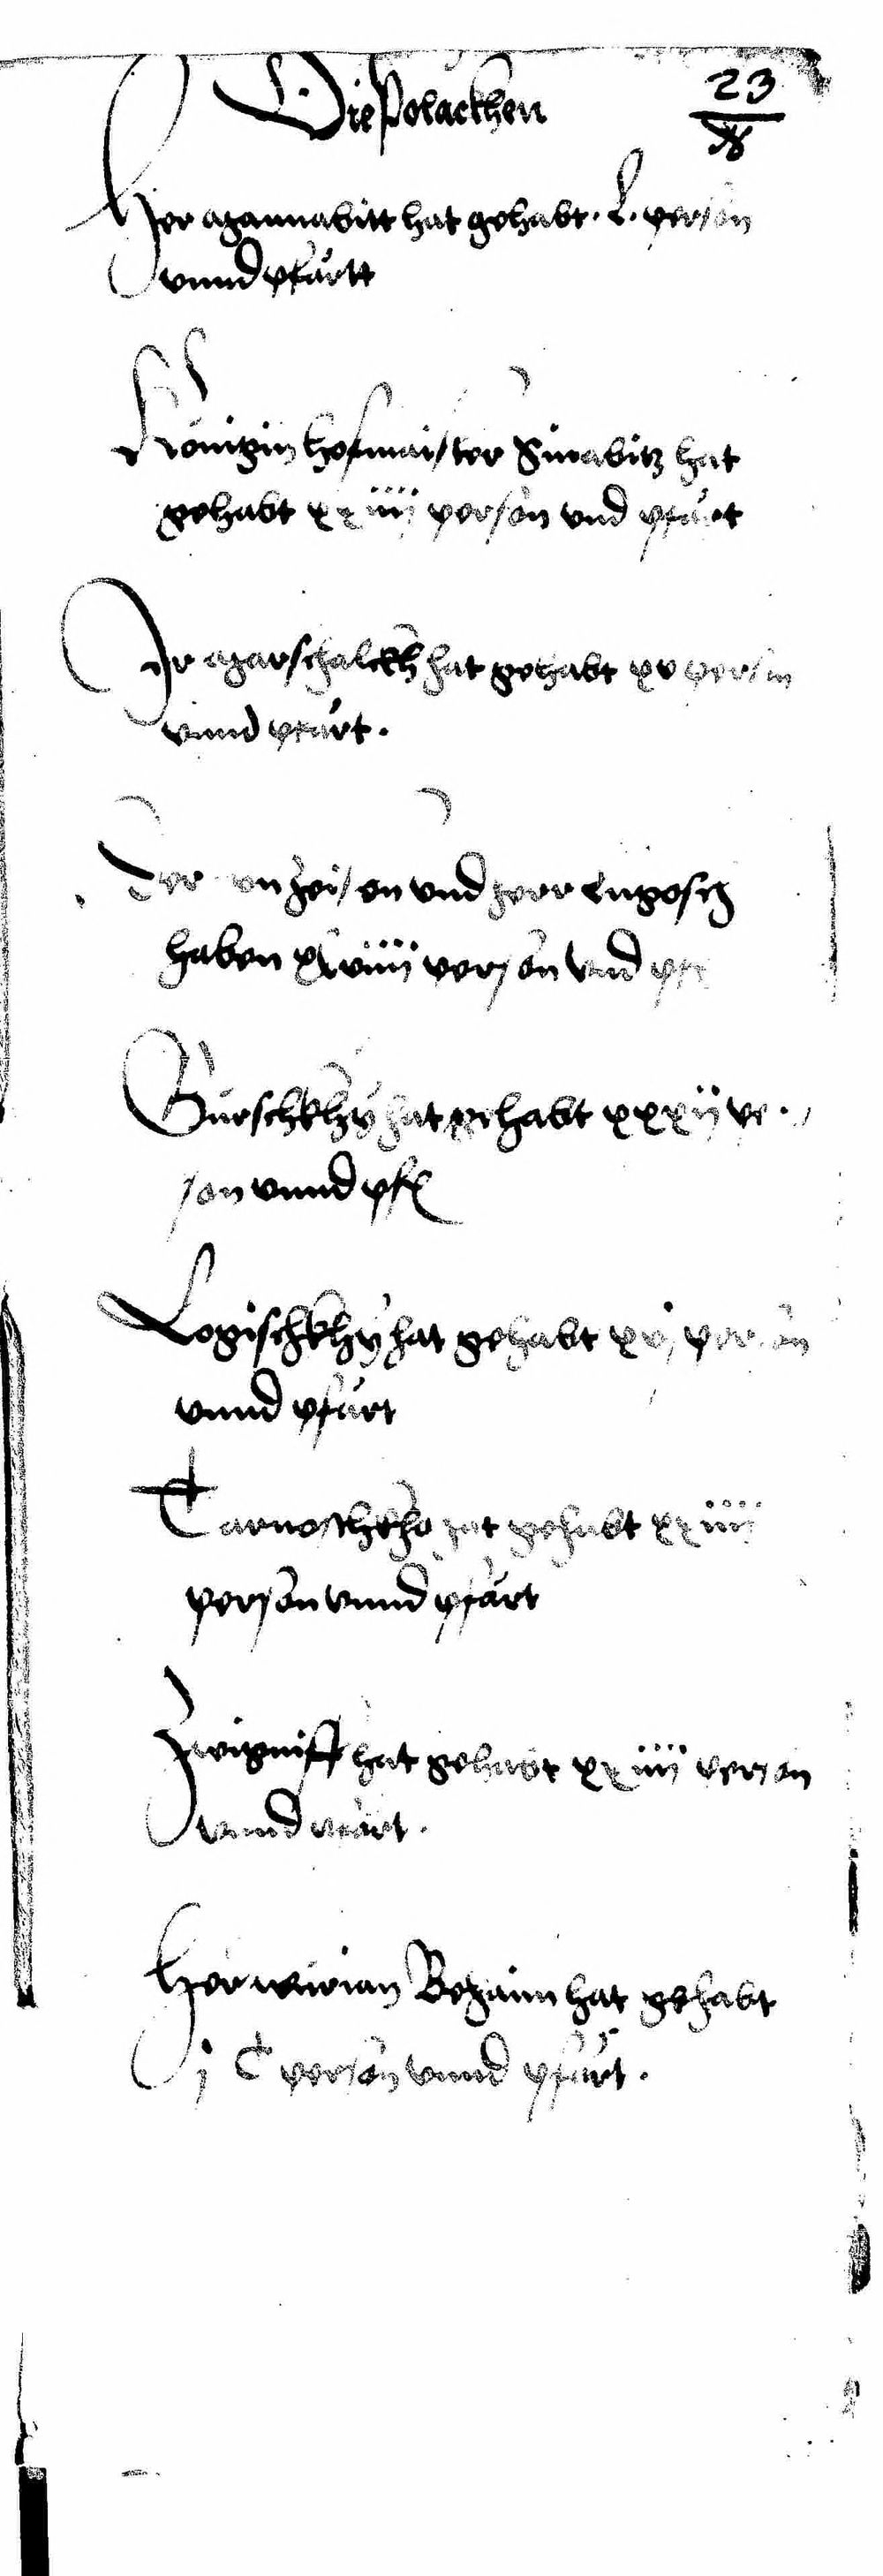 Die Polackhen
23
Her aȝannabitt hat gehabt . L . person
vnnd pfärtt
Königin hofmaister Sinabitz hat
gehabt xxiiij person vnd pfärt
Ir marschalckh hat gehabt xv person
vnnd pfärt .
Der vnd herr Lugosch
haben xxviiij person vnd pf
Gurschkhy hat gehabt xxxij per
son vnnd pf
Logischkhy hat gehabt xvj person
vnnd pfärt
Tarnoschkho hat gehabt xxiiij
person vnnd pfärt
hat gehabt xxiiij person
vnnd pfärt .
Her hat gehabt
j C person vnnd pfärt .